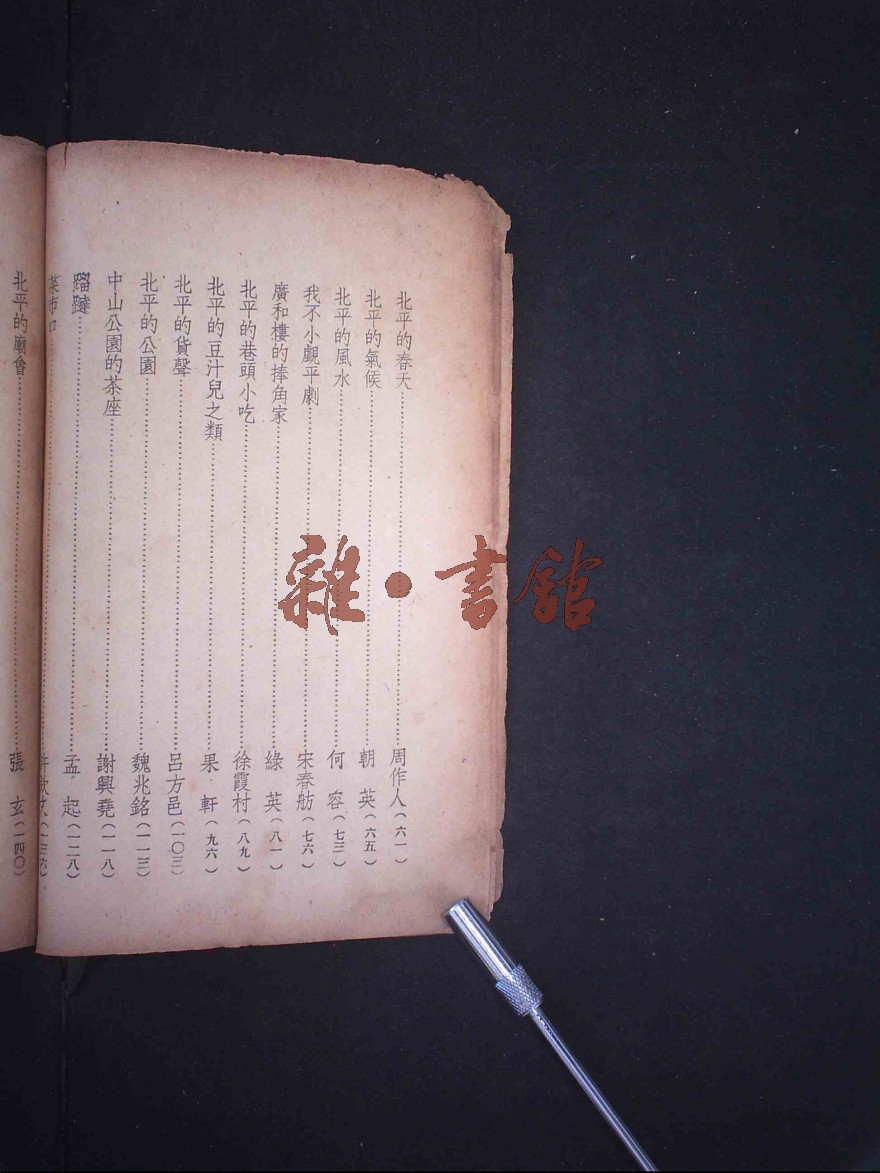 北平的春天………周作人(六一)
北平的氣候………朝英(六五)
北平的風水………何容(七三)
我不小覷平劇………宋春舫(七六)
廣和樓的捧角家………綠英(八一)
北平的巷頭小吃………徐霞村(八九)
北平的豆汁兒之類………果軒(九六)
北平的貨聲………呂方邑(一〇三)
北平的公園………魏兆銘(一一三)
中山公園的茶座………謝興堯(一一八)
蹓躂………孟起(一二八)
菜市口………許欽文(一三六)
北平的廟會………張玄(一四〇)
雜·書館